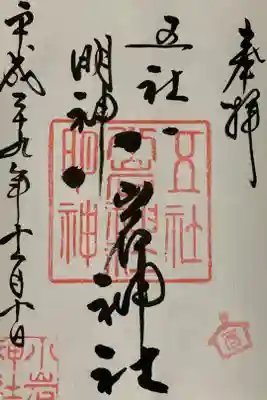 奉拝
五社
明神
岩神社
平成二十九年十一月十日
五社
明神